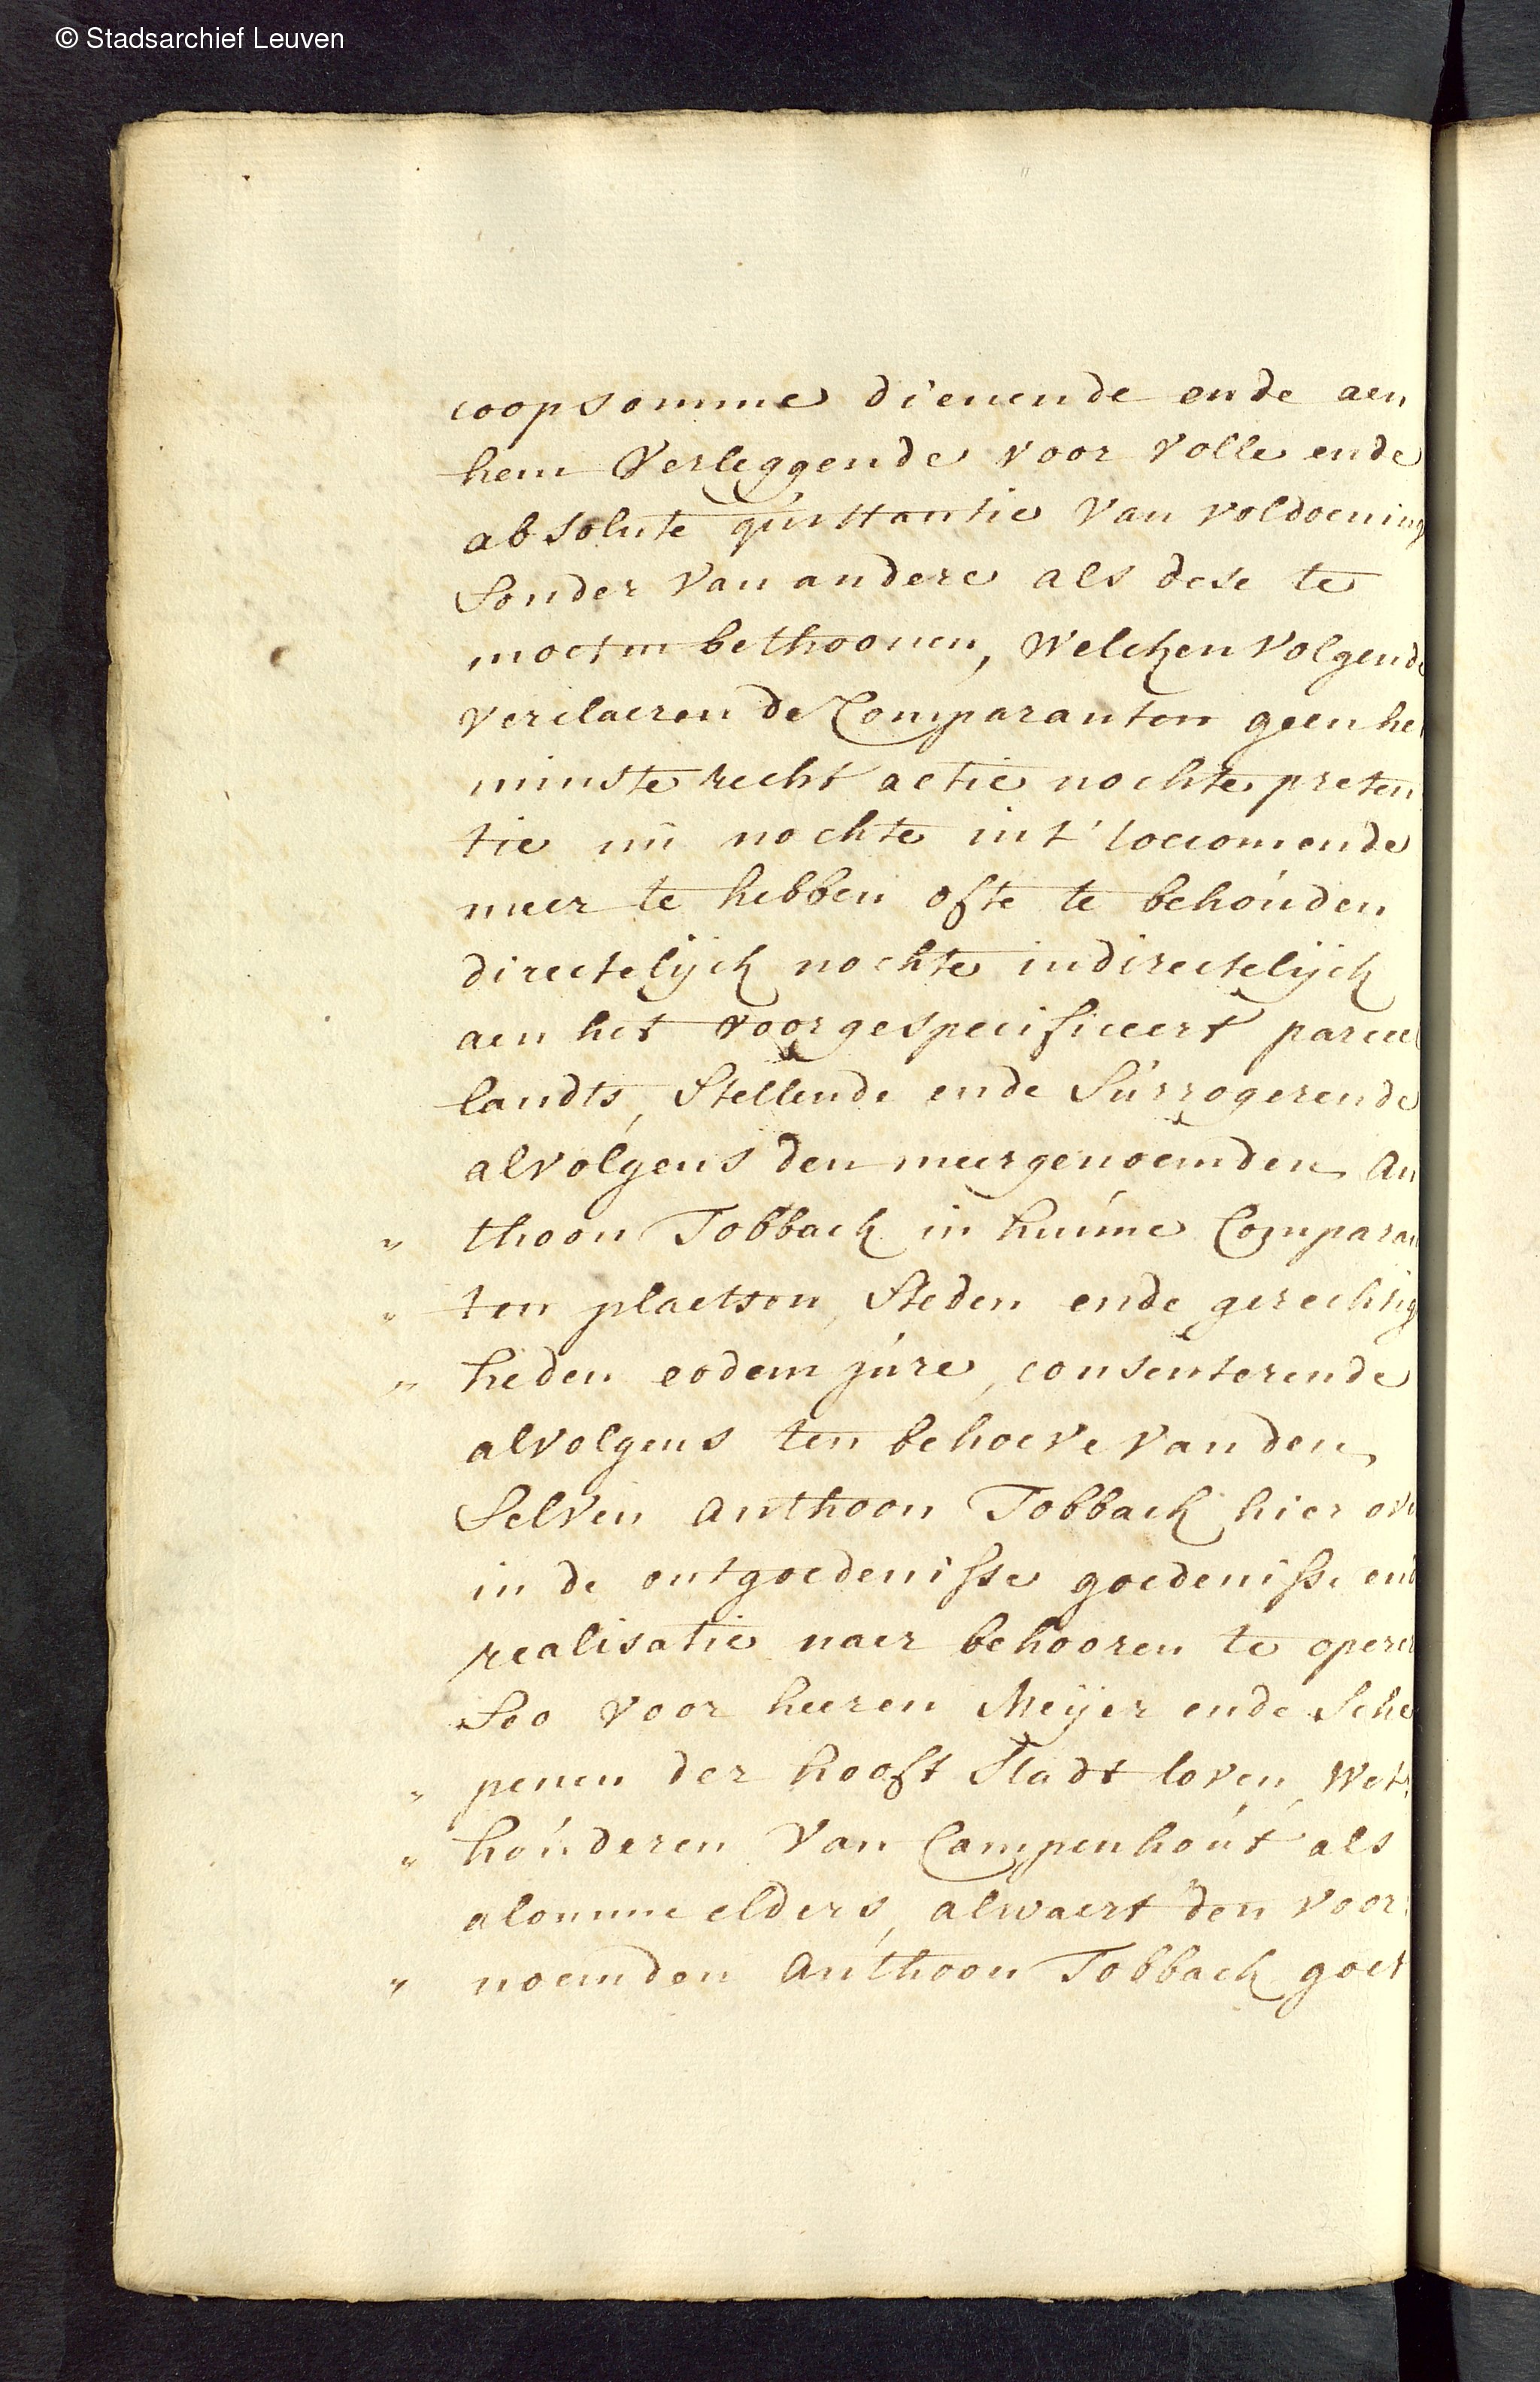 © Stadsarchief Leuven
coopsomme dienende ende aen
hem Verleggende voor volle ende
absolute quittantie van voldoening
Sonder van andere als dese te
moeten bethoonen, Welcken volgende
verclaeren de Comparanten geen het
minste recht actie nochte preten
tie nú nochte int' toecomende
meer te hebben ofte te behoúden
directelijck nochte indirectelijck
aen het voorgespecificeert parceel
landts, Stellende ende Súrrogerende
alvolgens den meergenoemden An
" thoon Tobback in húnne Comparan
" ten plaetsen, Steden ende gerechtig
" heden eodem júre, consenterende
alvolgens ten behoeve van den
Selven Anthoon Tobback hier ove
in de ontgoedenisse goedenisse ende
realisatie naer behooren te opere
Soo voor heeren Meijer ende Sche
" penen der hooft Stadt loven, Wet
" hoúderen van Campenhoút als
alomme elders, alwaert den voor
" noemden Anthoon Tobback goet